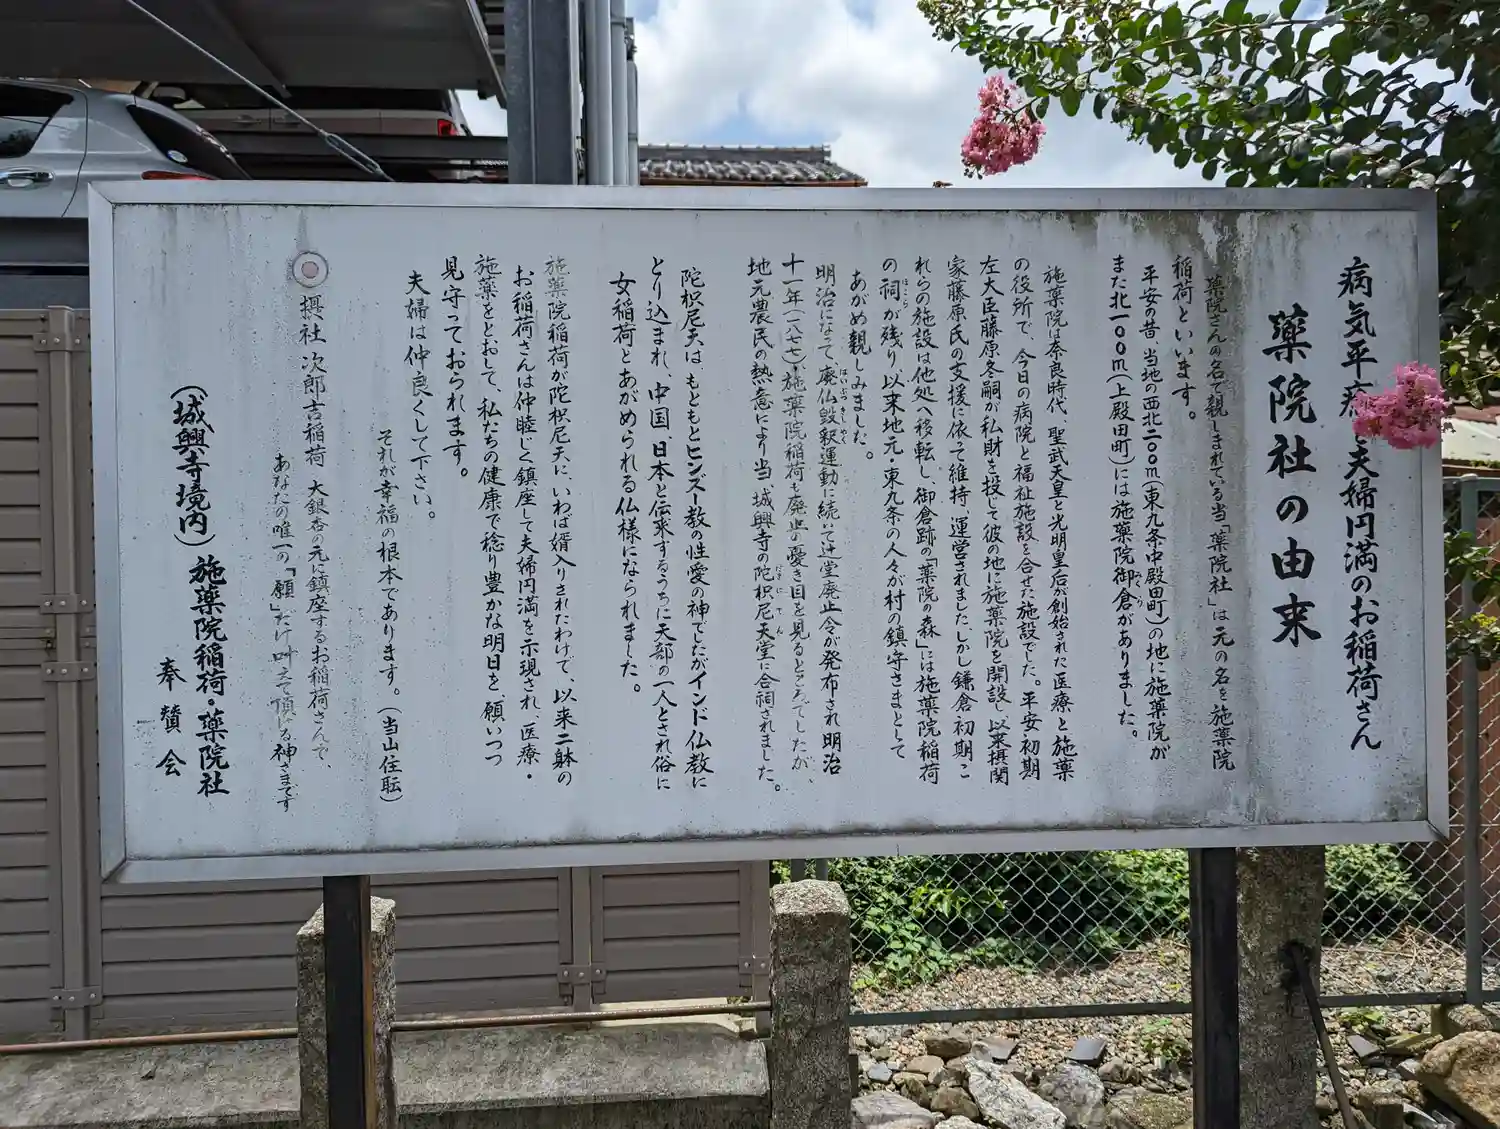 病気平癒と夫婦円満のお稲荷さん
薬院社の由来
薬院さんの名で親しまれている当「薬院社」は元の名を施薬院
稲荷といいます。
平安の昔、当地の西北二〇〇m(東九条中殿田町)の地に施薬院が
また北一〇〇m(上殿田町)には施薬院御倉がありました。
施薬院は奈良時代、聖武天皇と光明皇后が創始された医療と施薬
の役所で、今日の病院と福祉施設を合せた施設でした。平安初期
左大臣藤原冬嗣が私財を投して彼の地に施薬院を開設し以来摂関
家藤原氏の支援に依って維持、運営されました、しかし鎌倉初期こ
れらの施設は他処へ移転し、御倉跡の「薬院の森」には施薬院稲荷
の祠が残り以来地元・東九条の人々が村の鎮守さまとして
ほこら
あがめ親しみました。
明治になって廃仏毀釈運動に続いて辻堂廃止令が発布され明治
はいぶつきしゃく
十一年(一八七七)、施薬院稲荷も廃止の憂き目を見るところでしたが、
地元農民の熱意により当、城興寺の陀枳尼天堂に合祠されました。
だきにてん
陀枳尼天は、もともとヒンズー教の性愛の神でしたがインド仏教に
とり込まれ、中国、日本と伝来するうちに天部の一人とされ俗に
女稲荷とあがめられる仏様になられました。
施薬院稲荷が陀枳尼天に、いわば婿入りされたわけで、以来二躰の
お稲荷さんは仲睦じく鎮座して夫婦円満を示現され、医療・
施薬をとおして、私たちの健康で稔り豊かな明日を、願いつつ
見守っておられます。
夫婦は仲良くして下さい。
それが幸福の根本であります。(当山住職)
摂社 次郎吉稲荷 大銀杏の元に鎮座するお稲荷さんで、
あなたの唯一の「願」だけ叶えて頂ける神さまです
(城興寺境内)施薬院稲荷・薬院社
奉賛会